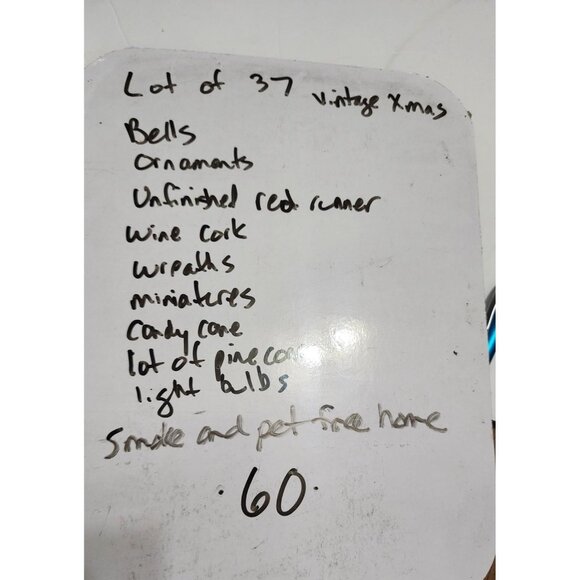 Lot of 37 vintage Xmas
Bells
ornaments
Unfinished red runner
wine cork
wreaths
miniatures
candy cane
lot of pine
light bulbs
smoke and pet free home
.60.